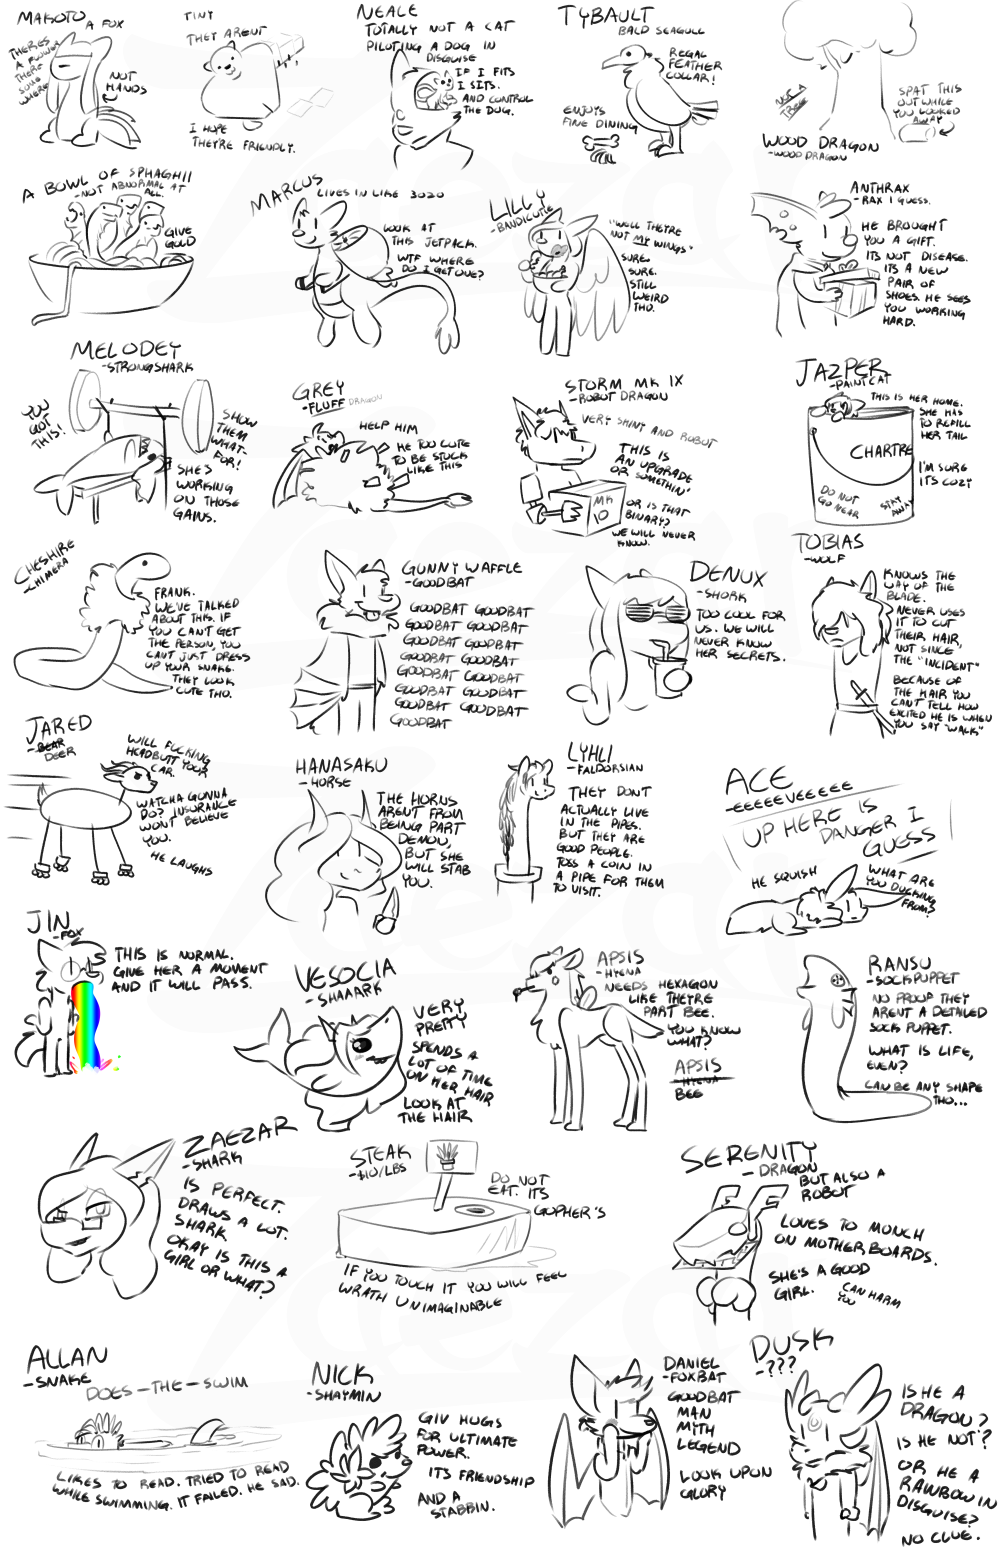 MAKOTO
A FOX
THERES
A FLOWER
THERE
SOME
WHERE
NOT
HANDS
TINY
THEY ARENT
I HOPE
THEY'RE FRIENDLY.
NEALE
TOTALLY NOT A CAT
PILOTING A DOG IN
DISGUISE
IF I FITS
I SITS.
AND CONTROL
THE DOG.
TYBAULT
BALD SEAGULL
REGAL
FEATHER
COLLAR!
ENJOYS
FINE DINING
NOT A
TREE
SPAT THIS
OUT WHILE
YOU LOOKED
AWAY
WOOD DRAGON
-WOOD DRAGON
A BOWL OF SPHAGHII
-NOT ABNORMAL AT
ALL.
GIVE
GOLD
MARCUS
LIVES IN LIKE 3020
LOOK AT
THIS JETPACK.
WTF WHERE
DO I GET ONE?
LILLY
-BANDICUTIE
"WELL THEY'RE
NOT MY WINGS"
SURE.
SURE.
STILL
WEIRD
THO.
ANTHRAX
-RAX I GUESS.
HE BROUGHT
YOU A GIFT.
ITS NOT DISEASE.
ITS A NEW
PAIR OF
SHOES. HE SEES
YOU WORKING
HARD.
MELODEY
-STRONGSHARK
YOU
GOT
THIS!
SHOW
THEM
WHAT-
FOR!
SHE'S
WORKING
ON THOSE
GAINS.
GREY
-FLUFF DRAGON
HELP HIM
HE TOO CUTE
TO BE STUCK
LIKE THIS
STORM MK IX
-ROBOT DRAGON
VERY SHINY AND ROBOT
THIS IS
AN UPGRADE
OR SOMETHIN'
MK
10
OR IS THAT
BINARY?
WE WILL NEVER
KNOW.
JAZPER
-PAINTCAT
THIS IS HER HOME.
SHE HAS
TO REFILL
HER TAIL
CHARTRE
I'M SURE
IT'S COZY
DO NOT
GO NEAR
STAY
AWAY
CHESHIRE
-CHIMERA
FRANK.
WE'VE TALKED
ABOUT THIS. IF
YOU CAN'T GET
THE PERSON, YOU
CAN'T JUST DRESS
UP YOUR SNAKE.
THEY LOOK
CUTE THO.
GUNNY WAFFLE
-GOODBAT
GOODBAT GOODBAT
GOODBAT GOODBAT
GOODBAT GOODBAT
GOODBAT GOODBAT
GOODBAT GOODBAT
GOODBAT GOODBAT
GOODBAT GOODBAT
GOODBAT
DENUX
-SHORK
TOO COOL FOR
US. WE WILL
NEVER KNOW
HER SECRETS.
TOBIAS
-WOLF
KNOWS THE
WAY OF THE
BLADE.
NEVER USES
IT TO CUT
THEIR HAIR,
NOT SINCE
THE "INCIDENT"
BECAUSE OF
THE HAIR YOU
CAN'T TELL HOW
EXCITED HE IS WHEN
YOU SAY "WALK"
JARED
-BEAR
DEER
WILL FUCKING
HEADBUTT YOUR
CAR.
WATCHA GONNA
DO? INSURANCE
WONT BELIEVE
YOU.
HE LAUGHS
HANASAKU
-HORSE
THE HORNS
ARENT FROM
BEING PART
DEMON,
BUT SHE
WILL STAB
YOU.
LYHLI
-FALDORSIAN
THEY DON'T
ACTUALLY LIVE
IN THE PIPES.
BUT THEY ARE
GOOD PEOPLE.
TOSS A COIN IN
A PIPE FOR THEM
TO VISIT.
ACE
-EEEEEVEEEEE
UP HERE IS
DANGER I
GUESS
HE SQUISH
WHAT ARE
YOU DUCKING
FROM?
JIN
-FOX
THIS IS NORMAL.
GIVE HER A MOMENT
AND IT WILL PASS.
VESOCIA
-SHAAARK
VERY
PRETTY
SPENDS A
LOT OF TIME
ON HER HAIR
LOOK AT
THE HAIR
APSIS
-HYENA
NEEDS HEXAGON
LIKE THEY'RE
PART BEE.
YOU KNOW
WHAT?
APSIS
-HYENA
BEE
RANSU
-SOCKPUPPET
NO PROOF THEY
ARENT A DETAILED
SOCK PUPPET.
WHAT IS LIFE,
EVEN?
CAN BE ANY SHAPE
THO...
ZAEZAR
-SHARK
IS PERFECT.
DRAWS A LOT.
SHARK
OKAY IS THIS A
GIRL OR WHAT?
STEAK
-$10/LBS
DO NOT
EAT. ITS
GOPHER'S
IF YOU TOUCH IT YOU WILL FEEL
WRATH UNIMAGINABLE
SERENITY
-DRAGON
BUT ALSO A
ROBOT
LOVES TO MONCH
ON MOTHERBOARDS.
SHE'S A GOOD
GIRL.
CAN HARM
YOU
ALLAN
-SNAKE
DOES-THE-SWIM
LIKES TO READ. TRIED TO READ
WHILE SWIMMING. IT FAILED. HE SAD.
NICK
-SHAYMIN
GIV HUGS
FOR ULTIMATE
POWER.
ITS FRIENDSHIP
AND A
STABBIN.
DANIEL
-FOXBAT
GOODBAT
MAN
MYTH
LEGEND
LOOK UPON
GLORY
DUSK
-???
IS HE A
DRAGON?
IS HE NOT?
OR HE A
RAINBOW IN
DISGUISE?
NO CLUE.